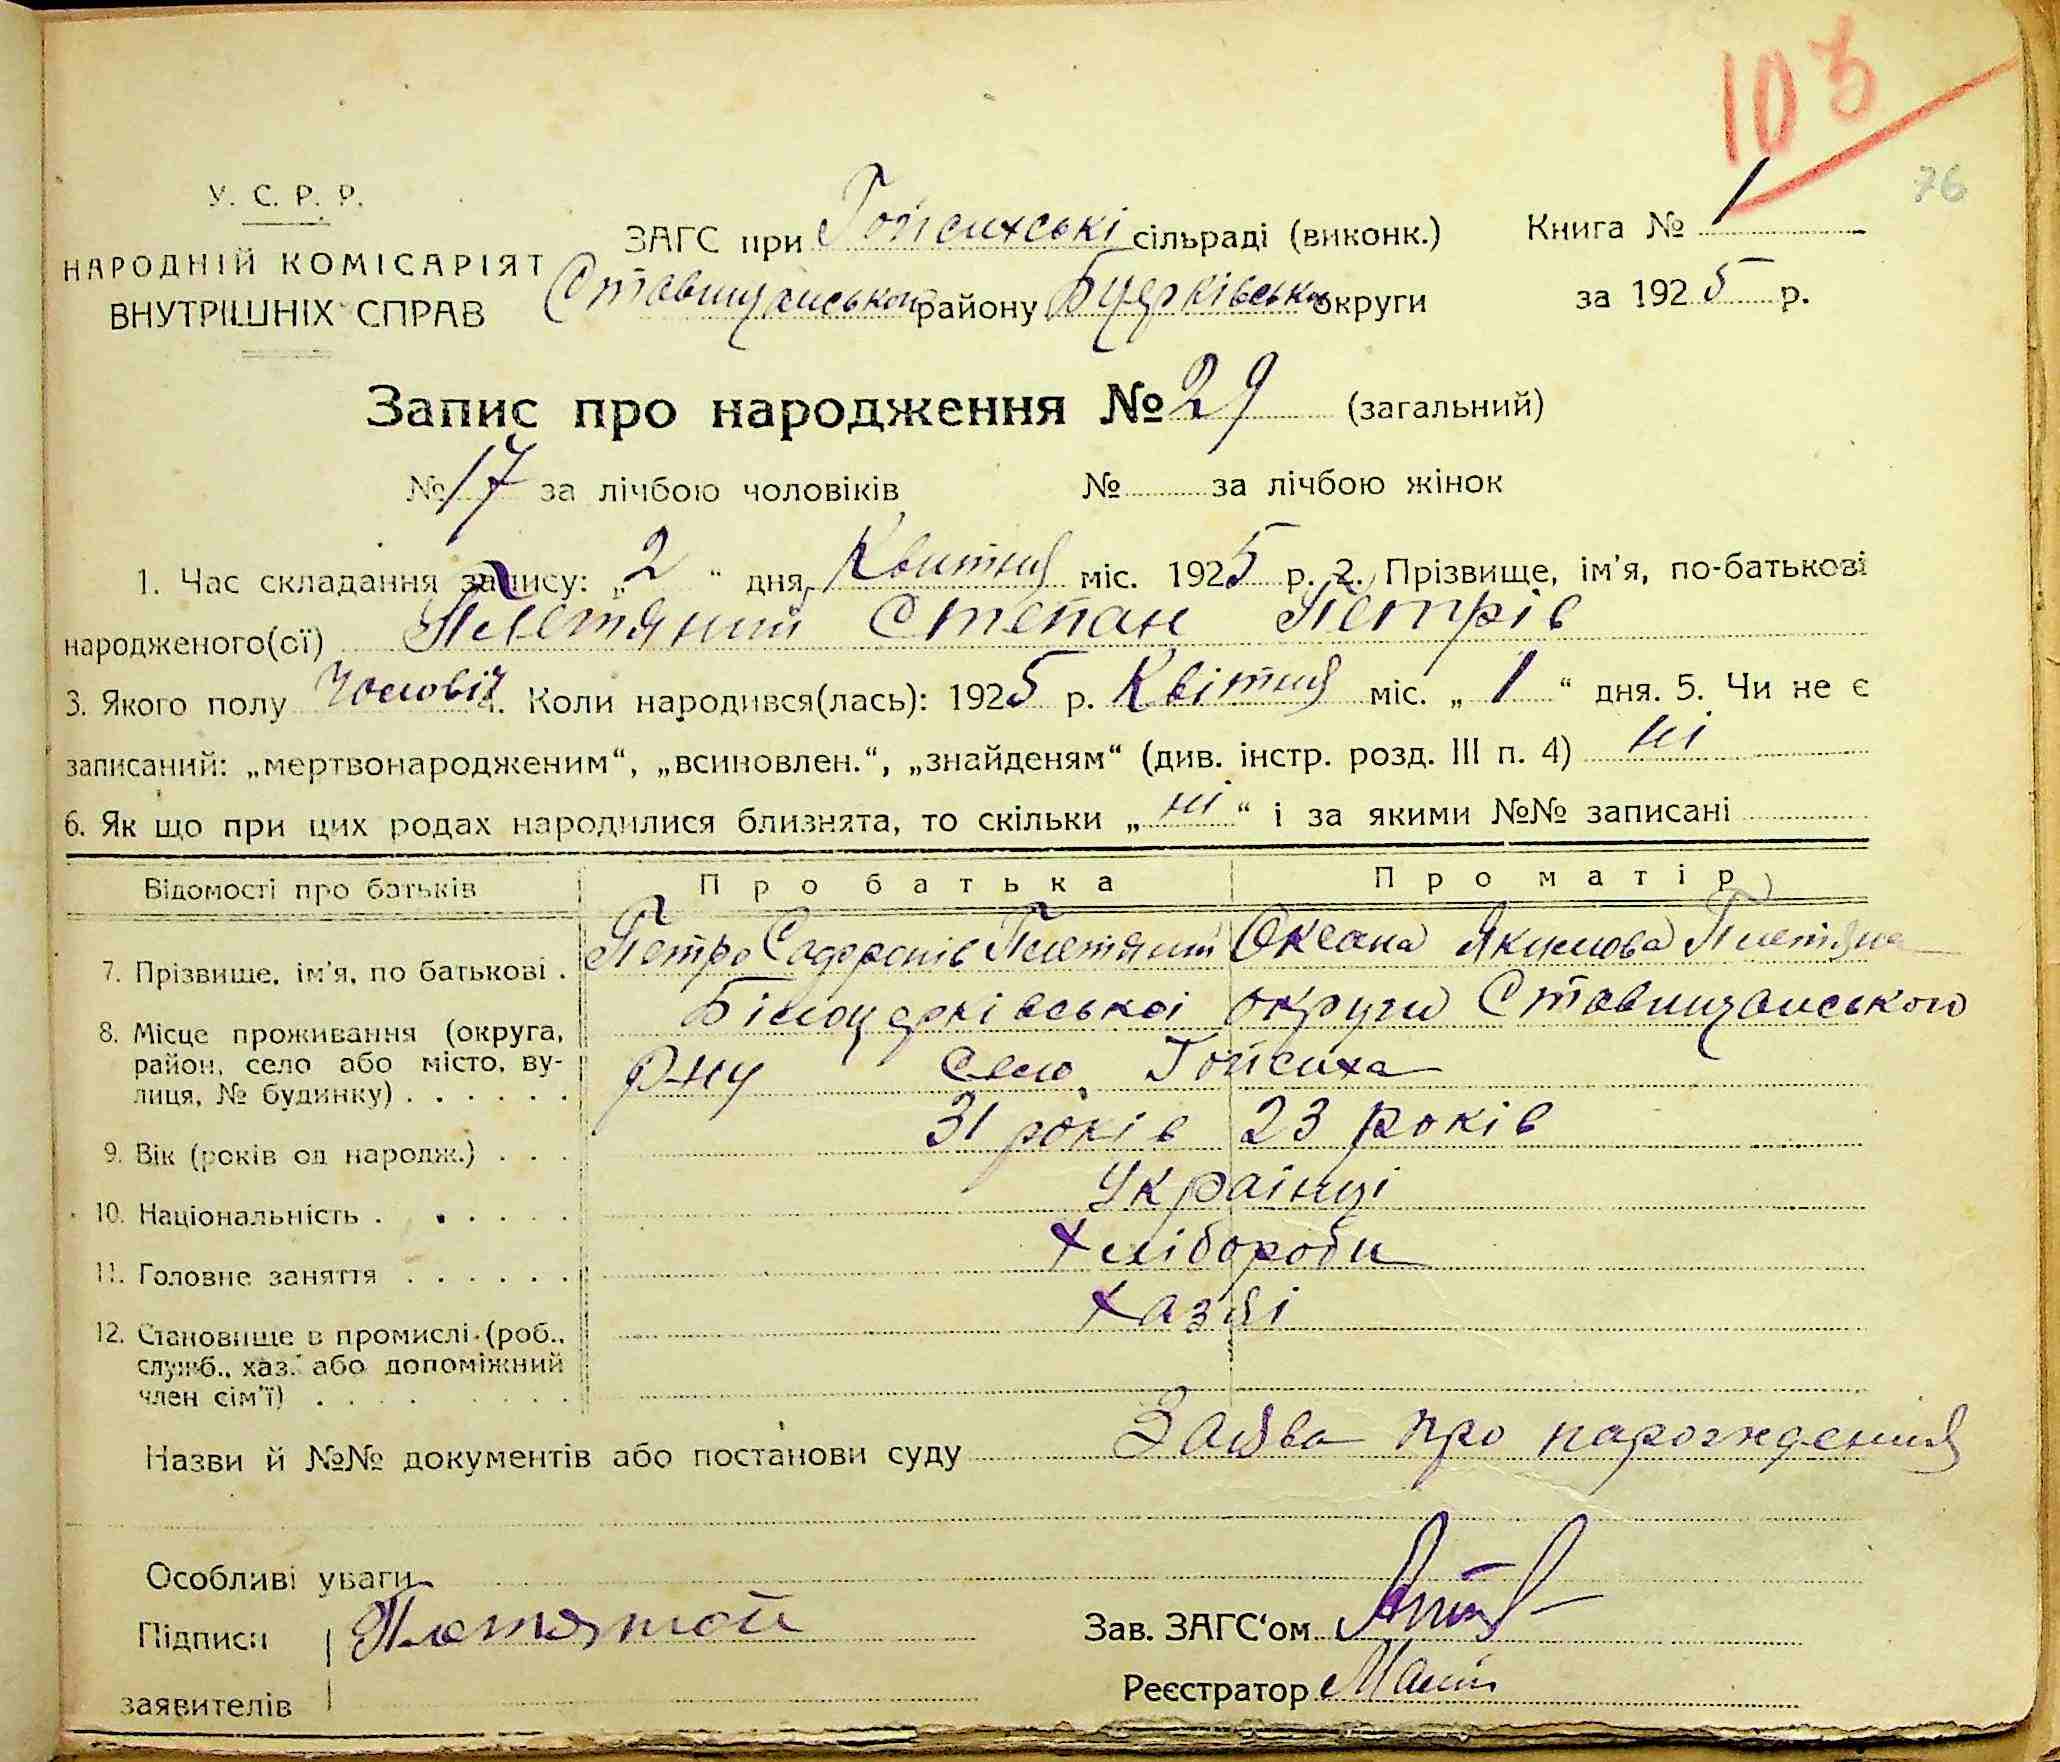 103
76
У. С. Р. Р.
НАРОДНІЙ КОМІСАРІЯТ
ВНУТРІШНІХ СПРАВ
ЗАГС при Гойсихські сільраді (виконк.) Книга № 1
Ставищанського району Б/церківсько округи за 1925 р.
Запис про народження № 29 (загальний)
№ 17 за лічбою чоловіків № за лічбою жінок
1. Час складання запису: „2“ дня Квітня міс. 1925 р. 2. Прізвище, ім'я, по-батькові
народженого(ої) Плетяний Степан Петрів
3. Якого полу Чоловіч 4. Коли народився(лась): 1925 р. Квітня міс. „1“ дня. 5. Чи не є
записаний: „мертвонародженим“, „всиновлен.“, „знайденям“ (див. інстр. розд. III п. 4) ні
6. Як що при цих родах народилися близнята, то скільки „ні“ і за якими №№ записані
Відомості про батьків Про батька Про матір
7. Прізвище, ім'я, по батькові . Петро Софронів Плетяний Оксана Якимова Плетяна
8. Місце проживання (округа, район, село або місто, вулиця, № будинку) . . . . . . Білоцерківськоі округи Ставищанського
р-ну село Гойсиха
9. Вік (років од народж.) . . . 31 років 23 років
10. Національність . . . . . . Українці
11. Головне заняття . . . . . . Хлібороби
12. Становище в промислі (роб., служб., хаз. або допоміжний член сім'ї) . . . . . . . Хазяі
Назви й №№ документів або постанови суду Заява про нарождения
Особливі уваги
Підписи Плетяной Зав. ЗАГС'ом
заявителів Реєстратор